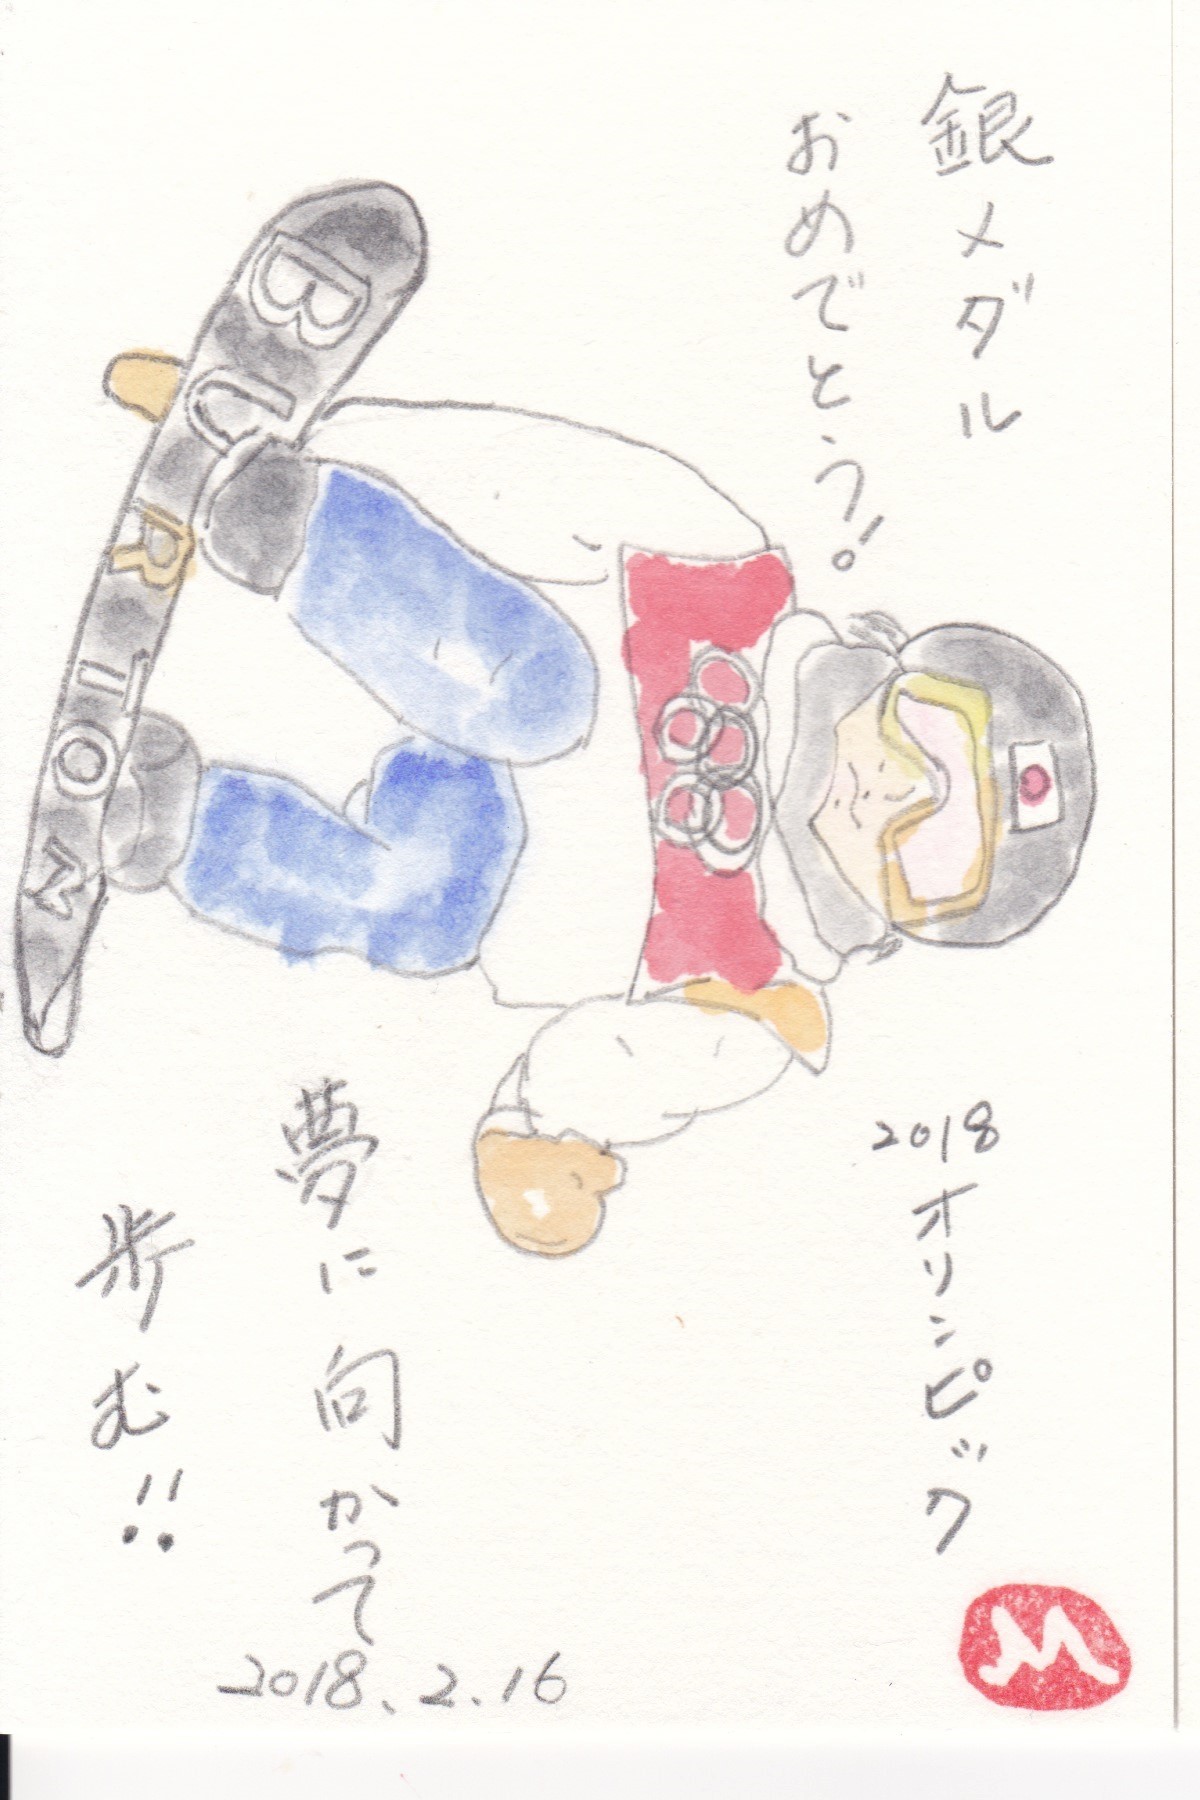 銀メダル
おめでとう!
2018
オリンピック
夢に向かって
歩む!!
2018.2.16
BURTON
M